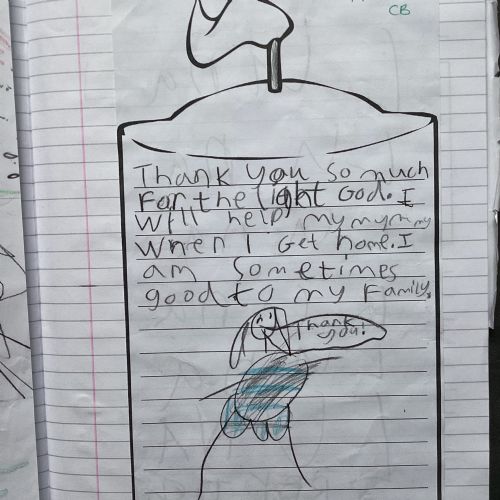 CB
Thank you so much
For the light God. I
will help my mymmy
when I Get home. I
am sometimes
good to my Family.
Thank
you!